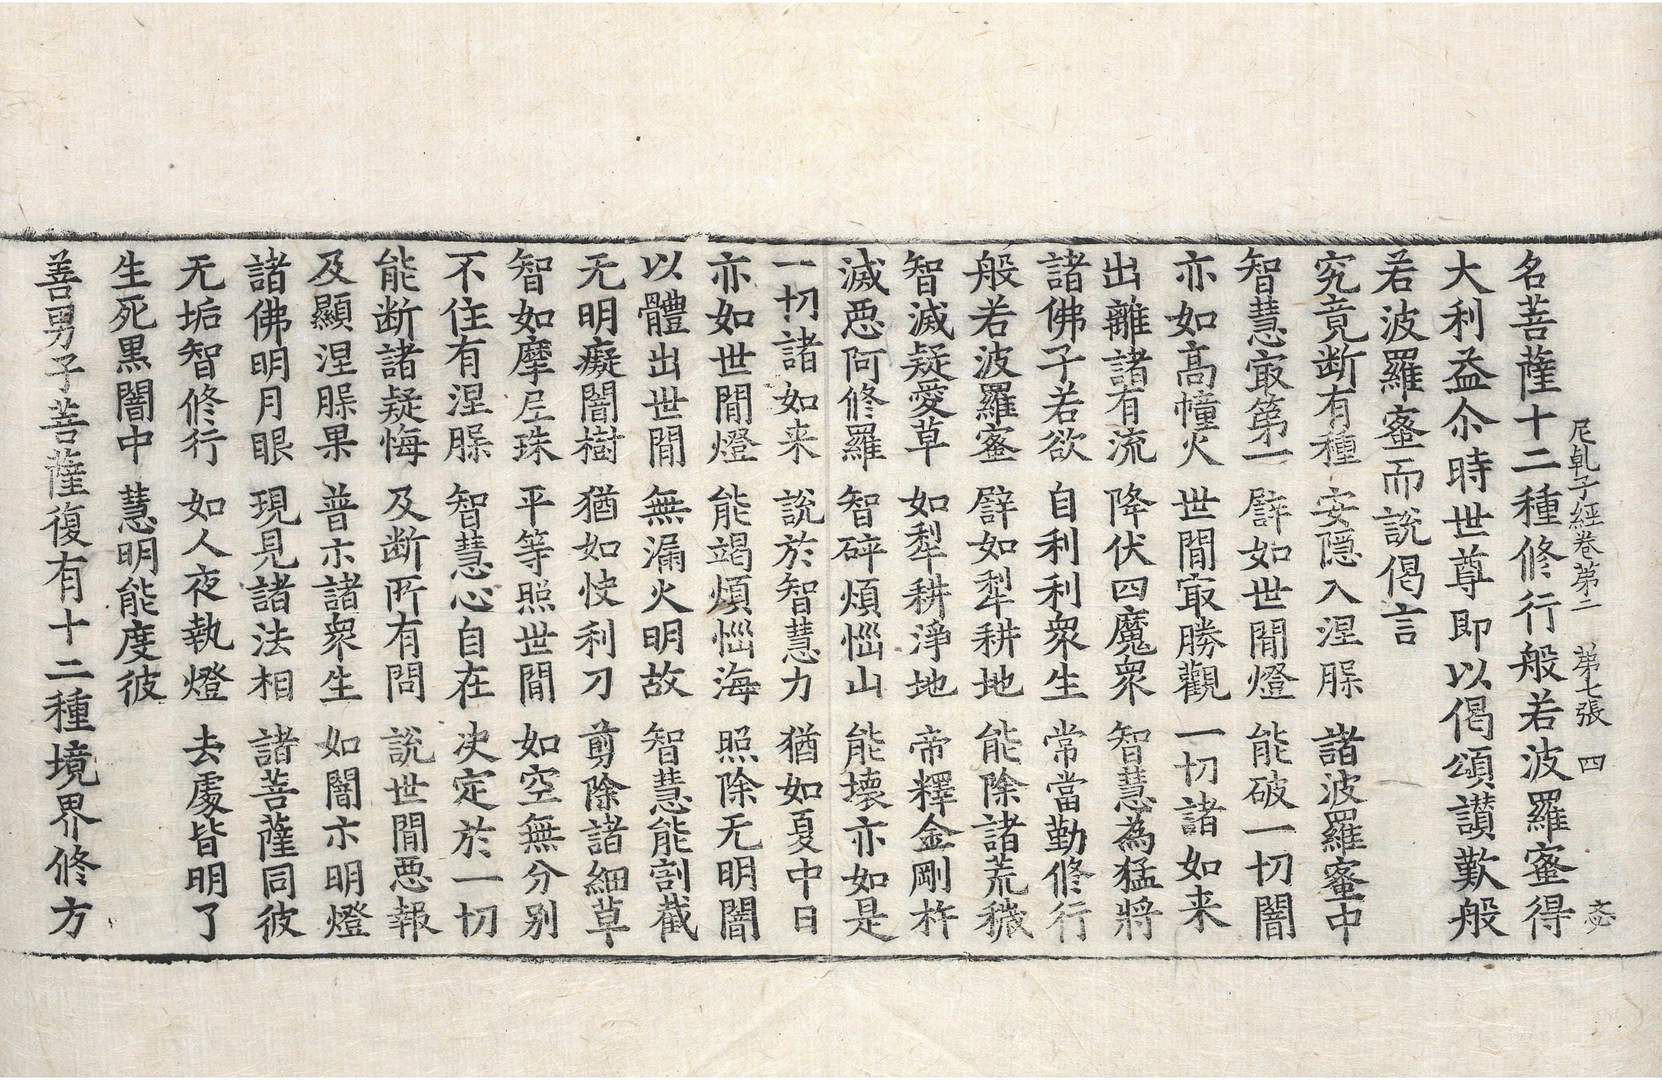 尼乹子經卷第二 第七張 四
名菩薩十二種修行般若波羅蜜得
大利益尒時世尊即以偈頌讃歎般
若波羅蜜而說偈言
究竟断有種 安隱入涅槃 諸波羅蜜中
智慧㝡第一 譬如世間燈 能破一切闇
亦如高幢火 世間㝡勝觀 一切諸如来
出離諸有流 降伏四魔衆 智慧為猛將
諸佛子若欲 自利利衆生 常當勤修行
般若波羅蜜 譬如犁耕地 能除諸荒穢
智滅疑愛草 如犁耕淨地 帝釋金剛杵
滅惡阿修羅 智碎煩惱山 能壞亦如是
一切諸如来 說於智慧力 猶如夏中日
亦如世間燈 能竭煩惱海 照除无明闇
以體出世間 無漏火明故 智慧能割截
无明癡闇樹 猶如快利刀 剪除諸細草
智如摩尼珠 平等照世間 如空無分别
不住有涅槃 智慧心自在 决定於一切
能断諸疑悔 及断所有問 說世間惡報
及顯涅槃果 普示諸衆生 如闇示明燈
諸佛明月眼 現見諸法相 諸菩薩同彼
无垢智修行 如人夜執燈 去處皆明了
生死黒闇中 慧明能度彼
善男子菩薩復有十二種境界修方